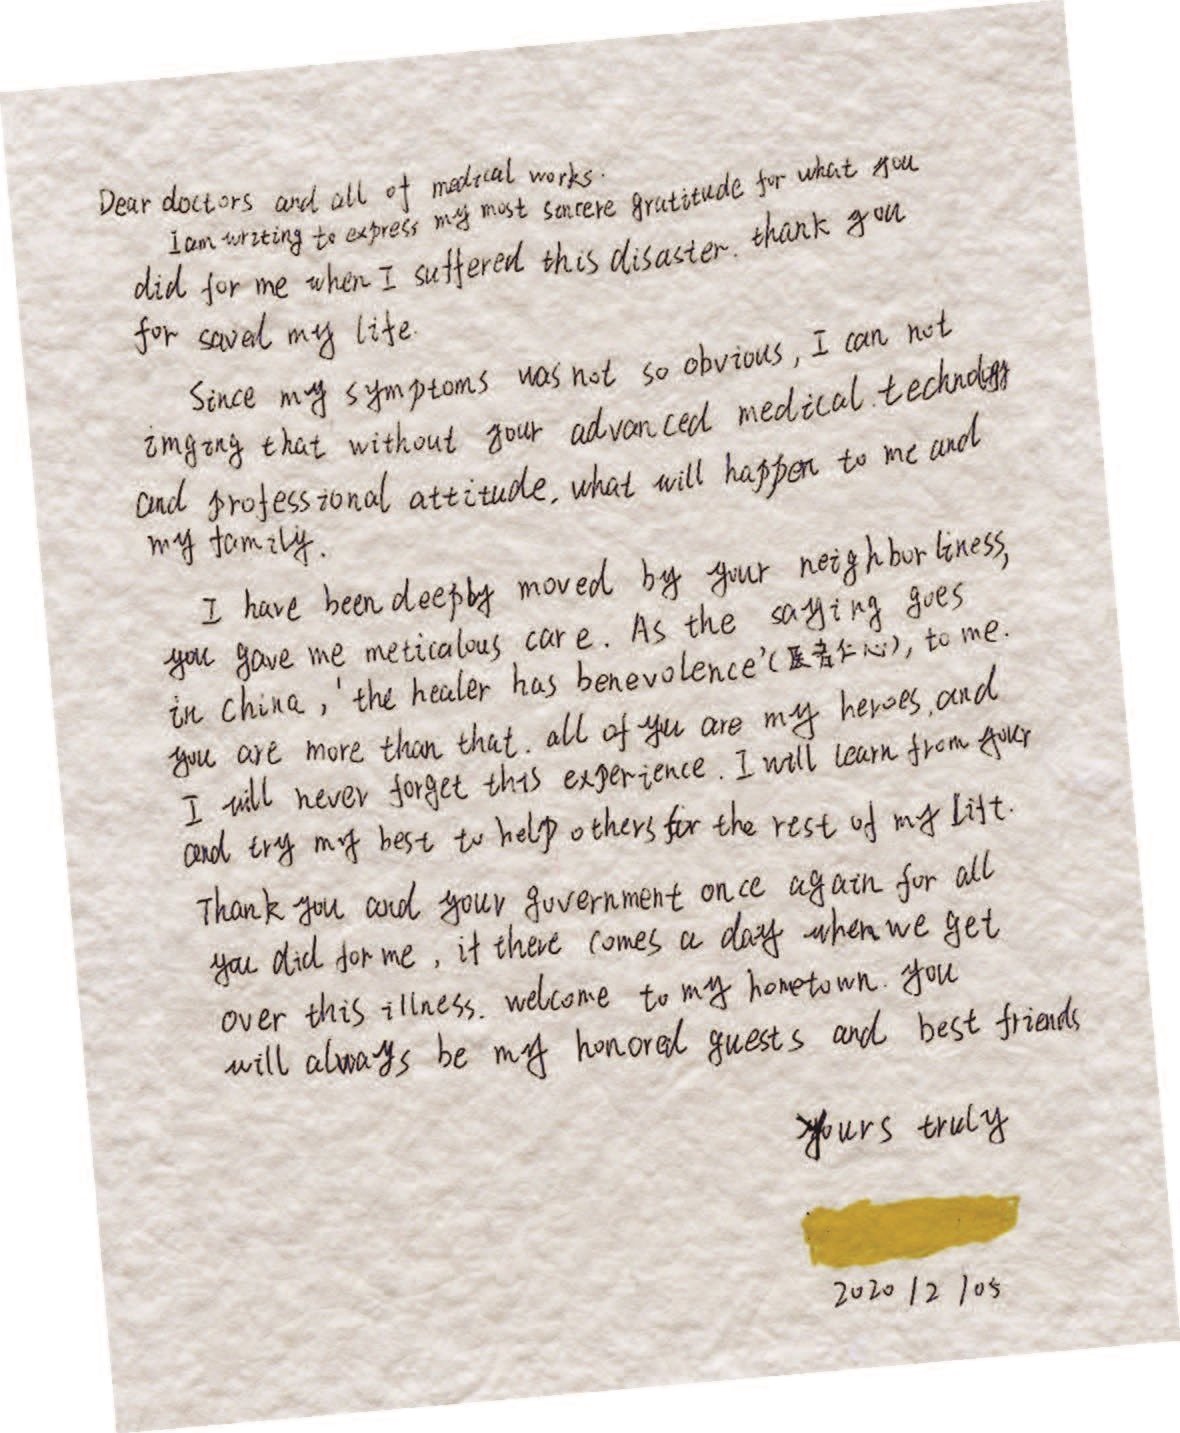 Dear doctors and all of medical works.
I am writing to express my most sincere gratitude for what you
did for me when I suffered this disaster. thank you
for saved my life.
Since my symptoms was not so obvious, I can not
imging that without your advanced medical technology
and professional attitude, what will happen to me and
my family.
I have been deeply moved by your neighborliness,
you gave me meticalous care. As the saying goes
in China, 'the healer has benevolence'(医者仁心), to me.
you are more than that. all of you are my heroes, and
I will never forget this experience. I will learn from your
and try my best to help others for the rest of my Lift.
Thank you and your government once again for all
you did for me, if there comes a day when we get
over this illness. welcome to my hometown. you
will always be my honored guests and best friends
yours truly
2020/2/05